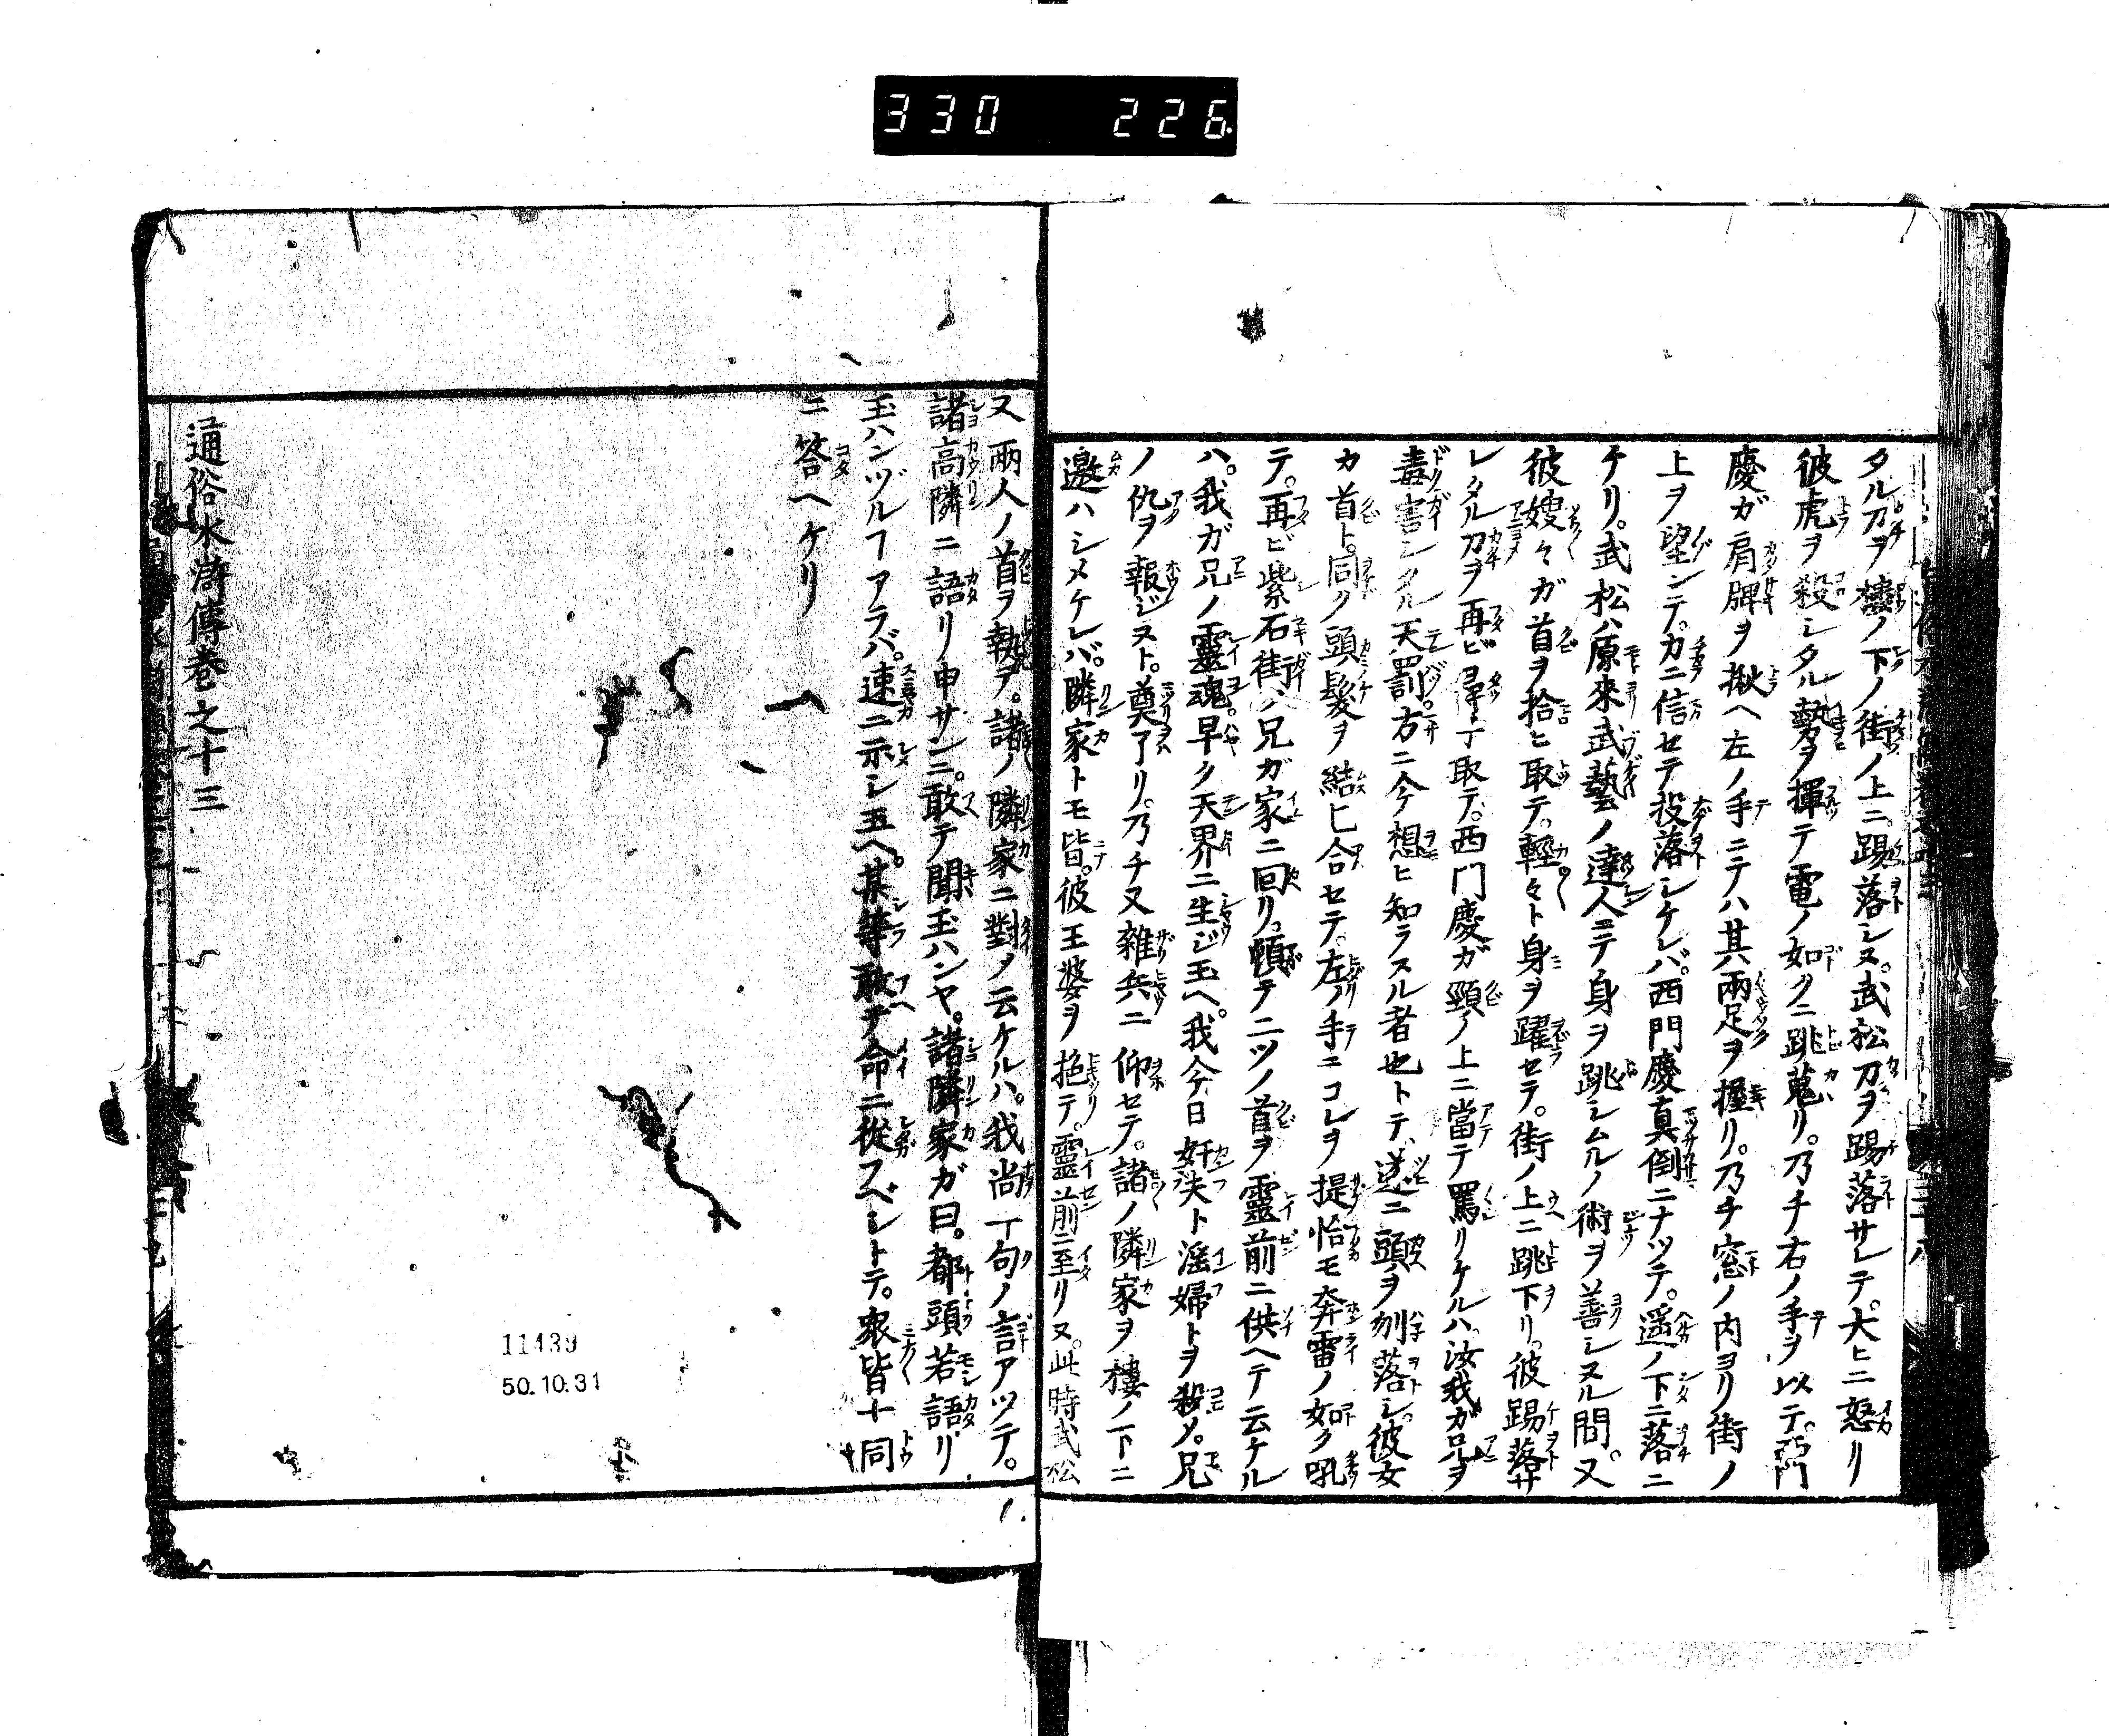 330 226
タル刀ヲ樓ノ下ノ街ノ上ニ踢落シヌ。武松刀ヲ踢落サレテ。大ヒニ怒リ
彼虎ヲ殺シタル勢ヲ揮テ電ノ如クニ跳蒐リ。乃チ右ノ手ヲ以テ。西門
慶ガ肩脾ヲ揪ヘ左ノ手ニテハ其兩足ヲ握リ。乃チ窓ノ内ヨリ街ノ
上ヲ望ンテ。力ニ信セテ投落シケレバ。西門慶真倒ニナツテ。遥ノ下ニ落ニ
チリ。武松ハ原來武藝ノ達人ニテ身ヲ跳シムルノ術ヲ善シヌル間。又
彼嫂々ガ首ヲ拾ヒ取テ。輕々ト身ヲ躍セテ。街ノ上ニ跳下リ。彼踢落サ
レタル刀ヲ再ビ尋子取テ。西門慶ガ頸ノ上ニ當テ罵リケルハ。汝我ガ兄ヲ
毒害シタル天罰。方ニ今想ヒ知ラスル者也トテ。遂ニ頭ヲ刎落シ。彼女
カ首ト。同ク頭髪ヲ結ヒ合セテ。左ノ手ニコレヲ提恰モ奔雷ノ如ク吼
テ。再ビ紫石街ハ兄ガ家ニ回リ。頓テ二ツノ首ヲ靈前ニ供ヘテ云ケル
ハ。我ガ兄ノ靈魂。早ク天界ニ生ジ玉ヘ。我今日奸夫ト淫婦トヲ殺メ。兄
ノ仇ヲ報ジヌト。奠了リ。乃チ又雜兵ニ仰セテ。諸ノ隣家ヲ樓ノ下ニ
邀ハシメケレバ。隣家トモ皆。彼王婆ヲ抱テ。靈前ニ至リヌ。此時武松
又兩人ノ首ヲ執テ。諸ノ隣家ニ對ノ云ケルハ。我尚一句ノ言アツテ。
諸高隣ニ語リ申サンニ。敢テ聞玉ハンヤ。諸隣家ガ曰。都頭若語リ
玉ハンヅルヿアラバ。速ニ示シ玉ヘ。某等敢テ命ニ從スベシトテ。衆皆十同
ニ答ヘケリ
通俗水滸傳巻之十三
11439
50.10.31